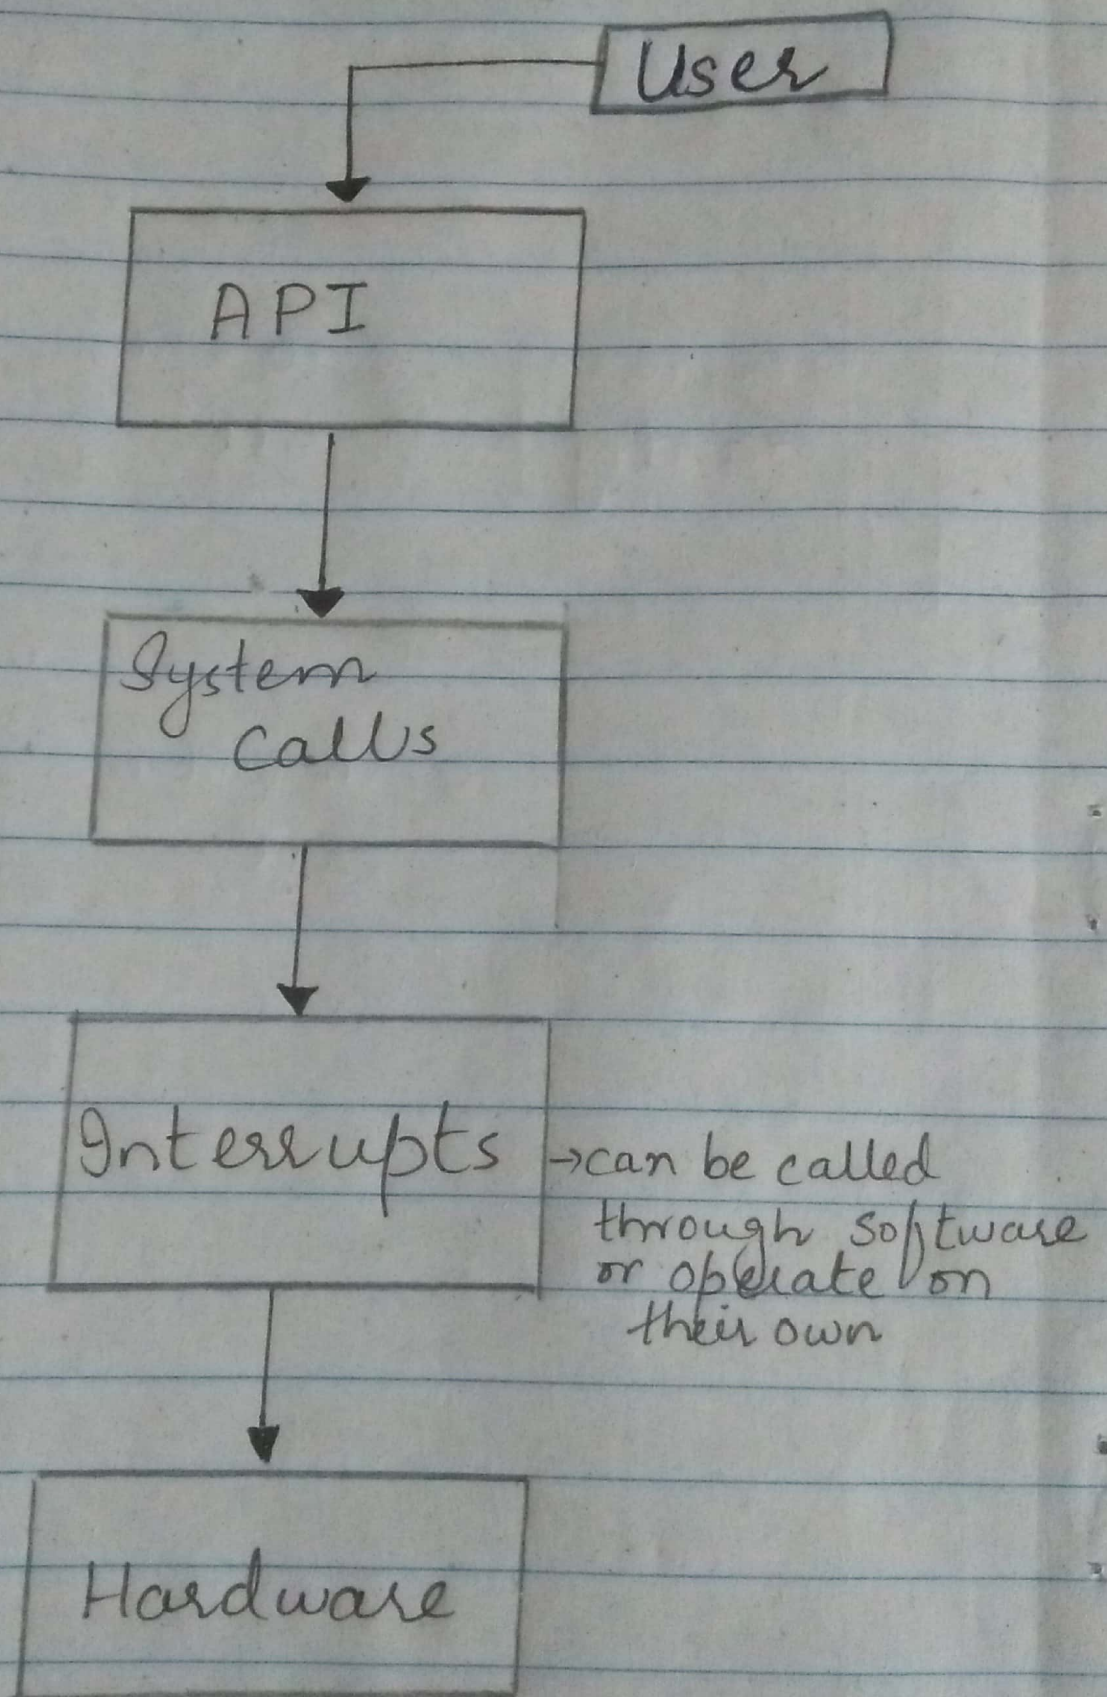 User
API
System
calls
Interrupts
→can be called
through software
or operate on
their own
Hardware